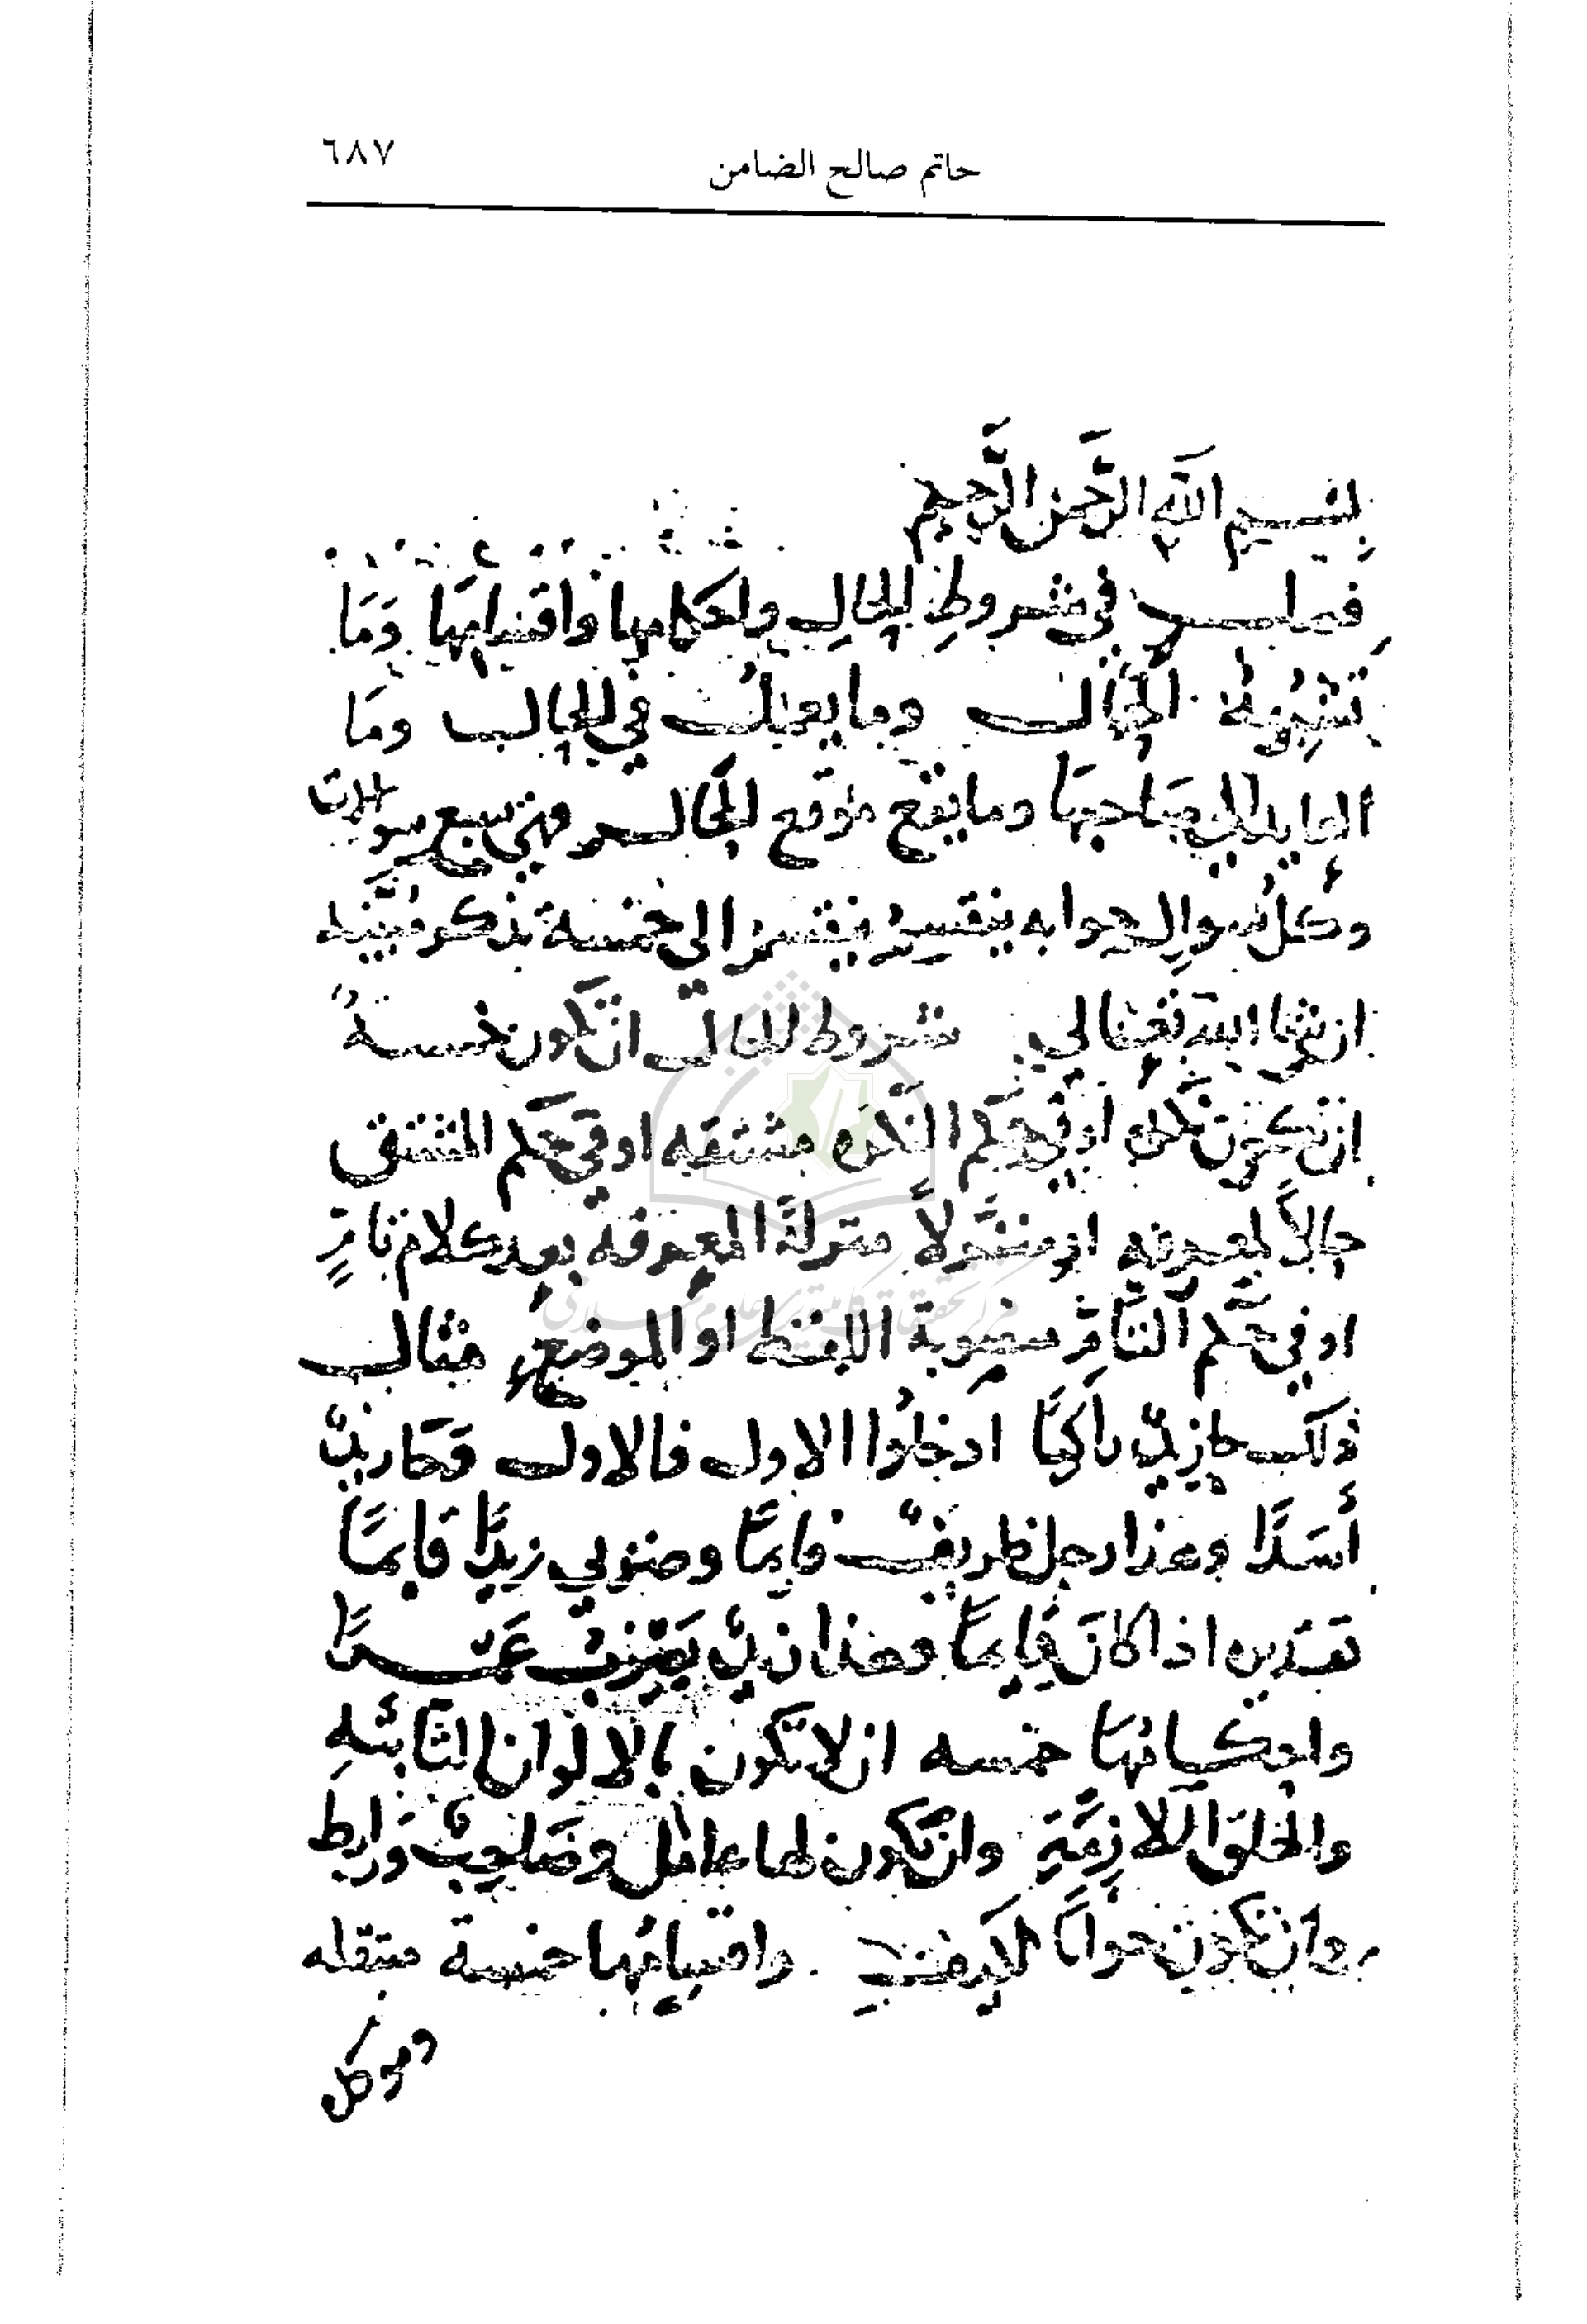 حاتم صالح الضامن
٦٨٧
بِسْمِ اللهِ الرَّحمن الرَّحيم
فصل في شروطِ الحالِ واحكامها واقسامها وَمَا
تشبهه الحال وما يعمل في الحال ومَا
العايد الى صَاحبهَا وما يقع موقع الحال فهي سبع سوالات
وكل سُوالٍ جوابه ينقسم الى خمسة نذكر مُبَيَّنه
ان شا الله تعالي شروط الحال ان تكون خمسةً
ان تكون نكره او في حكم النَّكره مشتقه او في حكم المشتق
حالاً لمعرفه او منزَّلاً منزلةَ المعرفة بعد كلام تامٍّ
او في حكم التَّامِّ منصوبة اللفظ او الموضع مثال
ذلك جا زيدٌ راكبًا ادخلُوا الاول فالاول وَكَّا زيدٌ
أسَدًا وهذا رجل ظريفٌ قايمًا وضربي زيدًا قايمًا
تقديره اذا كانَ قايمًا وهذا زيدٌ يَضْربُ عَمْرًا
واحكامُهَا خمسه ان لا تكون بالالوان الثَّابتَهِ
والخلق اللازِمَةِ وان تكون لها عامل وصَاحِبٌ وَرابط
وان تكون جوابًا لكيفَ واقسامُها خمسة منتقله
وموكد